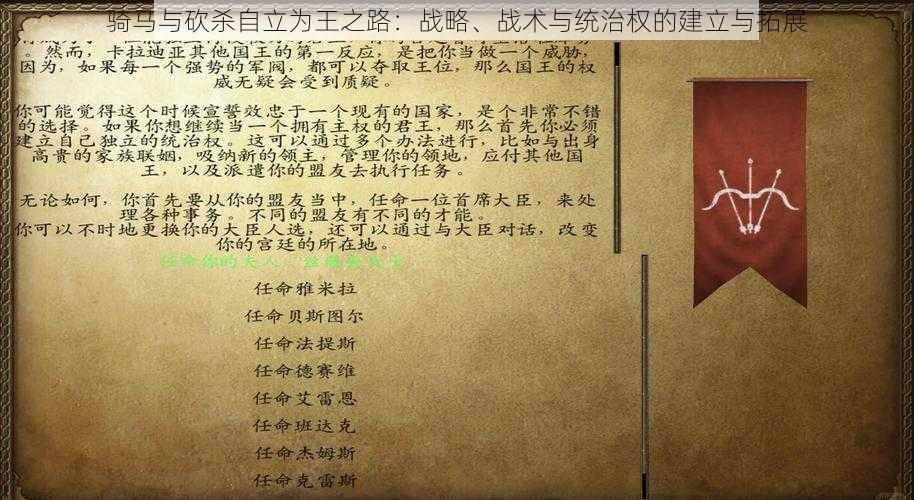 骑马与砍杀自立为王之路：战略、战术与统治权的建立与拓展
。然而，卡拉迪亚其他国王的第一反应，是把你当做一个威胁，
因为，如果每一个强势的军阀，都可以夺取王位，那么国王的权
威无疑会受到质疑。
你可能觉得这个时候宣誓效忠于一个现有的国家，是个非常不错
的选择。如果你想继续当一个拥有主权的君王，那么首先你必须
建立自己独立的统治权。这可以通过多个办法进行，比如与出身
高贵的家族联姻，吸纳新的领主，管理你的领地，应付其他国
王，以及派遣你的盟友去执行任务。
无论如何，你首先要从你的盟友当中，任命一位首席大臣，来处
理各种事务。不同的盟友有不同的才能。
你可以不时地更换你的大臣人选，还可以通过与大臣对话，改变
你的宫廷的所在地。
任命你的夫人，
任命雅米拉
任命贝斯图尔
任命法提斯
任命德赛维
任命艾雷恩
任命班达克
任命杰姆斯
任命克雷斯